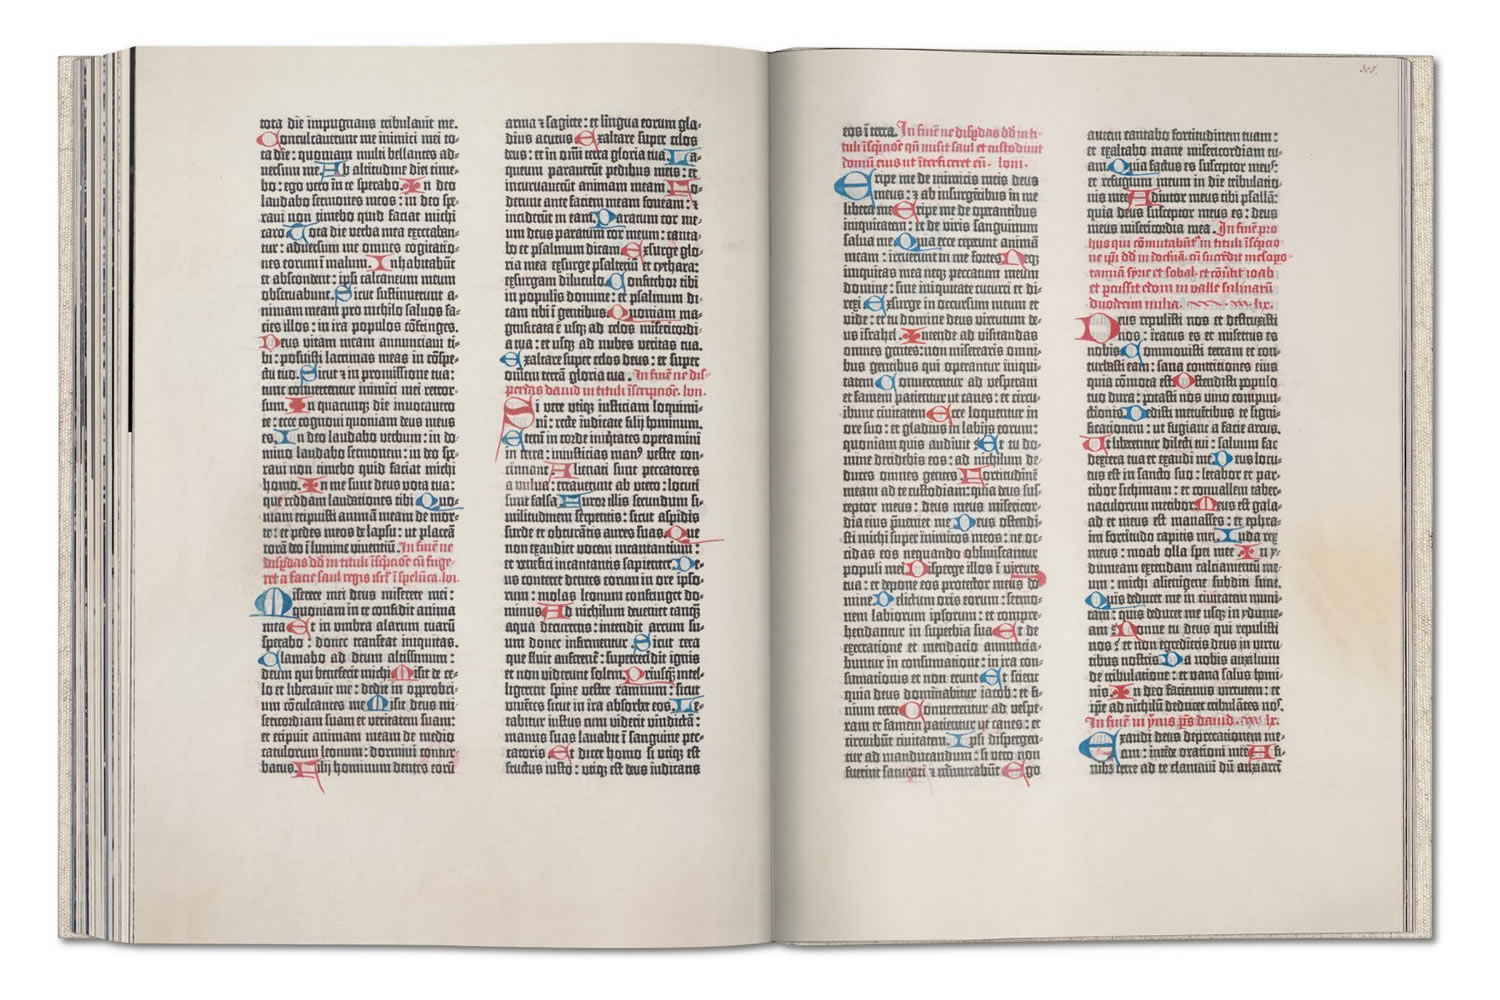 tota die impugnans tribulauit me.
Conculcauerunt me inimici mei to-
ta die: quoniam multi bellantes ad-
uersum me. Ab altitudine diei time-
bo: ego vero in te sperabo. In deo
laudabo sermones meos: in deo spe-
raui non timebo quid faciat michi
caro. Tota die verba mea execraban-
tur: aduersum me omnes cogitatio-
nes eorum ĩ malum. Inhabitabũt
et abscondent: ipsi calcaneum meum
obseruabunt. Sicut sustinuerunt a-
nimam meam pro nichilo saluos fa-
cies illos: in ira populos cõfringes.
Deus vitam meam annunciaui ti-
bi: posuisti lacrimas meas in cõspe-
ctu tuo. Sicut ⁊ in promissione tua:
tunc conuertentur inimici mei retror-
sum. In quacunqꝫ die inuocauero
te: ecce cognoui quoniam deus meus
es. In deo laudabo verbum: in do-
mino laudabo sermonem: in deo spe-
raui non timebo quid faciat michi
homo. In me sunt deus vota tua:
que reddam laudationes tibi. Quo-
niam eripuisti animã meam de mor-
te: et pedes meos de lapsu: ut placeã
corã deo ĩ lumine viuentiũ. In finẽ ne
disꝑdas dd̃ in tituli ĩscp̃cõe cũ fuge-
ret a facie saul regis isrl̃ ĩ spelũca. lvi.
Miserere mei deus miserere mei:
quoniam in te confidit anima
mea. Et in vmbra alarum tuarũ
sperabo: donec transeat iniquitas.
Clamabo ad deum altissimum:
deum qui benefecit michi. Misit de ce-
lo et liberauit me: dedit in opprobri-
um cõculcantes me. Misit deus mi-
sericordiam suam et veritatem suam:
et eripuit animam meam de medio
catulorum leonum: dormiui contur-
batus. Filij hominum dentes eorũ
arma ⁊ sagitte: et lingua eorum gla-
dius acutus. Exaltare super celos
deus: et in omĩ terra gloria tua. La-
queum parauerũt pedibus meis: et
incuruauerũt animam meam. Fo-
derunt ante faciem meam foueam: et
inciderũt in eam. Paratum cor me-
um deus paratum cor meum: canta-
bo et psalmum dicam. Exsurge glo-
ria mea exsurge psalteriũ et cythara:
exsurgam diluculo. Confitebor tibi
in populis domine: et psalmum di-
cam tibi ĩ gentibus. Quoniam ma-
gnificata ẽ usqꝫ ad celos misericordi-
a tua: et usqꝫ ad nubes veritas tua.
Exaltare super celos deus: et super
omẽm terrã gloria tua. In finẽ ne dis-
perdas dauid in tituli ĩscripcõe. lvii.
Si vere vtiqꝫ iusticiam loquimi-
ni: recte iudicate filij hominum.
Etenĩ in corde iniq̃tates operamini
in terra: iniusticias manꝰ vestre con-
cinnant. Alienati sunt peccatores
a vulua: errauerunt ab vtero: locuti
sunt falsa. Furor illis secundum si-
militudinem serpentis: sicut aspidis
surde et obturãtis aures suas. Que
non exaudiet vocem incantantium:
et venefici incantantis sapienter. De-
us conteret dentes eorum in ore ipso-
rum: molas leonum confringet do-
minus. Ad nichilum deuenient tanqꝫ
aqua decurrens: intendit arcum su-
um donec infirmentur. Sicut cera
que fluit auferent̃: supercecidit ignis
et non viderunt solem. Priusqꝫ intel-
ligerent spine vestre ramnum: sicut
viuẽtes sicut in ira absorbet eos. Le-
tabitur iustus cum viderit vindictã:
manus suas lauabit ĩ sanguine pec-
catoris. Et dicet homo si vtiqꝫ est
fructus iusto: vtiqꝫ est deus iudicans
305.
eos ĩ terra. In finẽ ne disꝑdas dd̃ in ti-
tuli ĩscp̃cõe qñ misit saul et custodiuit
domũ eius ut ĩterficeret eũ. lviii.
Eripe me de inimicis meis deus
meus: ⁊ ab insurgẽtibus in me
libera me. Eripe me de operantibus
iniquitatem: et de viris sanguinum
salua me. Quia ecce ceperunt animã
meam: irruerunt in me fortes. Neqꝫ
iniquitas mea neqꝫ peccatum meum
domine: sine iniquitate cucurri et di-
rexi. Exsurge in occursum meum et
vide: et tu domine deus virtutum de-
us israhel. Intende ad visitandas
omnes gentes: non miserearis omni-
bus gentibus qui operantur iniqui-
tatem. Conuertentur ad vesperam
et famem patientur ut canes: et circu-
ibunt ciuitatem. Ecce loquentur in
ore suo: et gladius in labijs eorum:
quoniam quis audiuit. Et tu do-
mine deridebis eos: ad nichilum de-
duces omnes gentes. Fortitudinẽ
meam ad te custodiam: quia deus sus-
ceptor meus: deus meus misericor-
dia eius p̃ueniet me. Deus ostendi-
sti michi super inimicos meos: ne oc-
cidas eos nequando obliuiscantur
populi mei. Disperge illos ĩ virtute
tua: et depone eos protector meus do-
mine. Delictum oris eorum: sermo-
nem labiorum ipsorum: et compre-
hendantur in superbia sua. Et de
execratione et mendacio annuncia-
buntur in consumatione: in ira con-
sumationis et non erunt. Et scient
quia deus dominabitur iacob: et fi-
nium terre. Conuertentur ad vespe-
ram et famem patientur ut canes: et
circuibũt ciuitatem. Ipsi dispergen-
tur ad manducandum: si vero non
fuerint saturati ⁊ murmurabũt. Ego
autem cantabo fortitudinem tuam:
et exaltabo mane misericordiam tu-
am. Quia factus es susceptor meus:
et refugium meum in die tribulatio-
nis mee. Adiutor meus tibi psallã:
quia deus susceptor meus es: deus
meus misericordia mea. In finẽ pro
hijs qui cõmutabũt̃ in tituli ĩscp̃cio-
et sobal et cõũtit ioab
et percussit edom in valle salinarũ
duodecim milia. lix.
Deus repulisti nos et destruxisti
nos: iratus es et misertus es
nobis. Commouisti terram et con-
turbasti eam: sana contritiones eius
quia cõmota est. Ostendisti populo
tuo dura: potasti nos vino compun-
ctionis. Dedisti metuentibus te signi-
ficationem: ut fugiant a facie arcus.
Ut liberentur dilecti tui: saluum fac
dextera tua et exaudi me. Deus locu-
tus est in sancto suo: letabor et par-
tibor sichimam: et conuallem taber-
naculorum metibor. Meus est gala-
ad et meus est manasses: et ephra-
im fortitudo capitis mei. Iuda rex
meus: moab olla spei mee. In y-
dumeam extendam calciamentũ me-
um: michi alienigene subditi sunt.
Quis deducet me in ciuitatem muni-
tam: quis deducet me usqꝫ in ydume-
am. Nonne tu deus qui repulisti
nos: et non egredieris deus in virtu-
tibus nostris. Da nobis auxilium
de tribulatione: et vana salus homi-
nis. In deo faciemus virtutem: et
ip̃e ad nichilũ deducet tribulãtes nos.
In finẽ in ymnis p̃s dauid. lx.
Exaudi deus deprecationem me-
am: intẽde orationi mee. A fi-
nibꝫ terre ad te clamaui dũ anxiaret̃